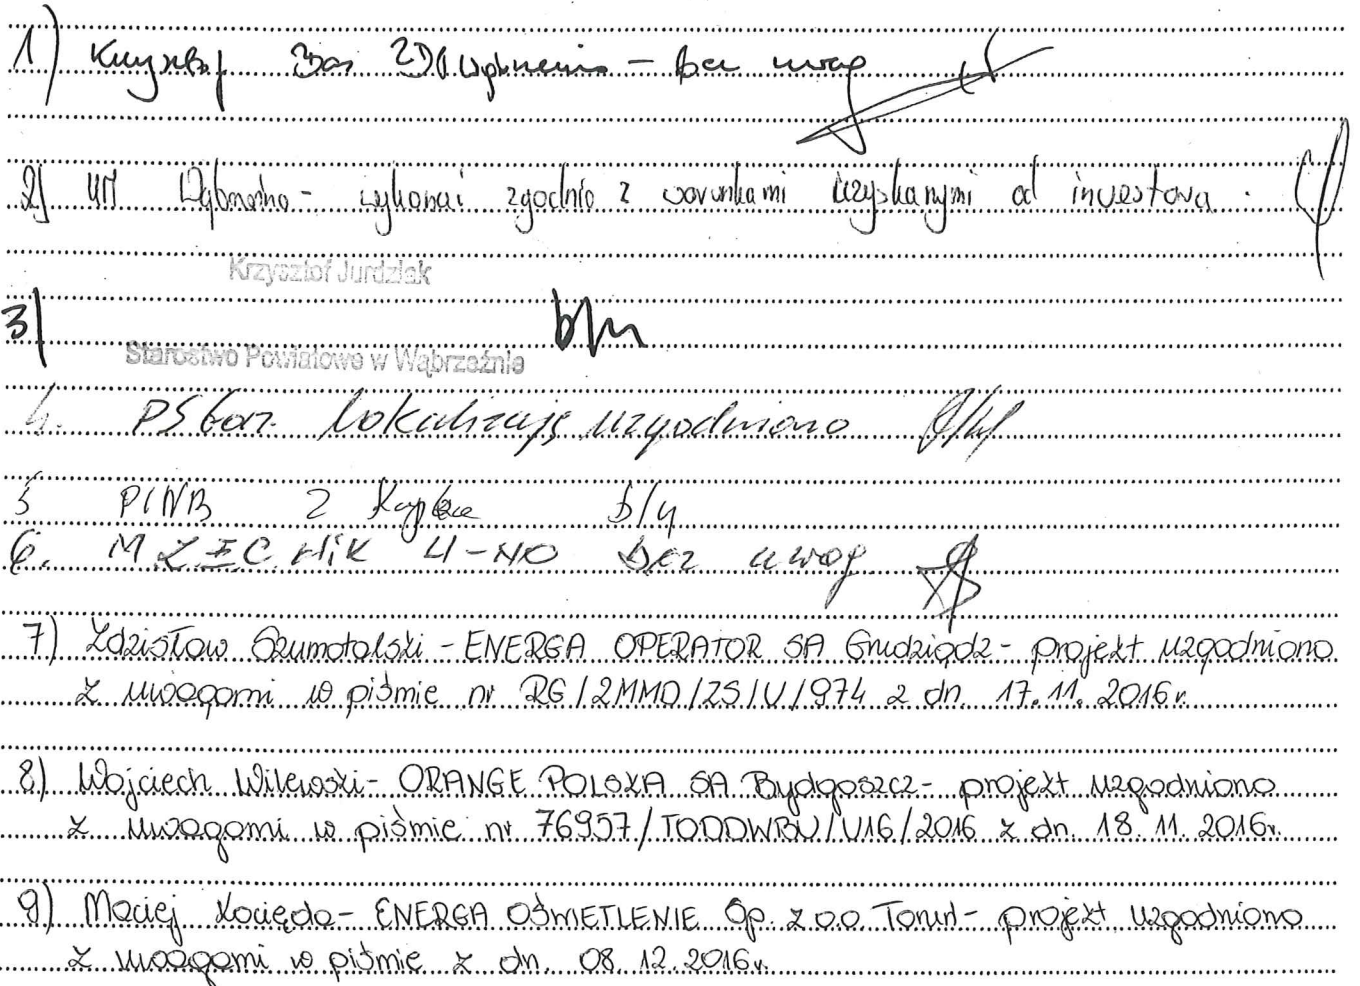 1) Krzysztof Żoś ZDP Wąbrzeźno – bez uwag
2) UM Wąbrzeźno - wykonać zgodnie z warunkami uzyskanymi od inwestora.
Krzysztof Jurdziak
3) b/u
Starostwo Powiatowe w Wąbrzeźnie
4. PSG lokalizację uzgodniono
5 PINB b/u
6. bez uwag
7) Zdzisław Szumotalski - ENERGA OPERATOR SA Grudziądz - projekt uzgodniono
z uwagami w piśmie nr RG/2MMO/ZS/U/974 z dn. 17.11.2016r.
8) Wojciech Wilewski - ORANGE POLSKA SA Bydgoszcz - projekt uzgodniono
z uwagami w piśmie nr 76957/TODDWBU/U16/2016 z dn. 18.11.2016r.
9) Maciej Kocięda - ENERGA OŚWIETLENIE Sp. z o.o. Toruń - projekt uzgodniono
z uwagami w piśmie z dn. 08.12.2016r.